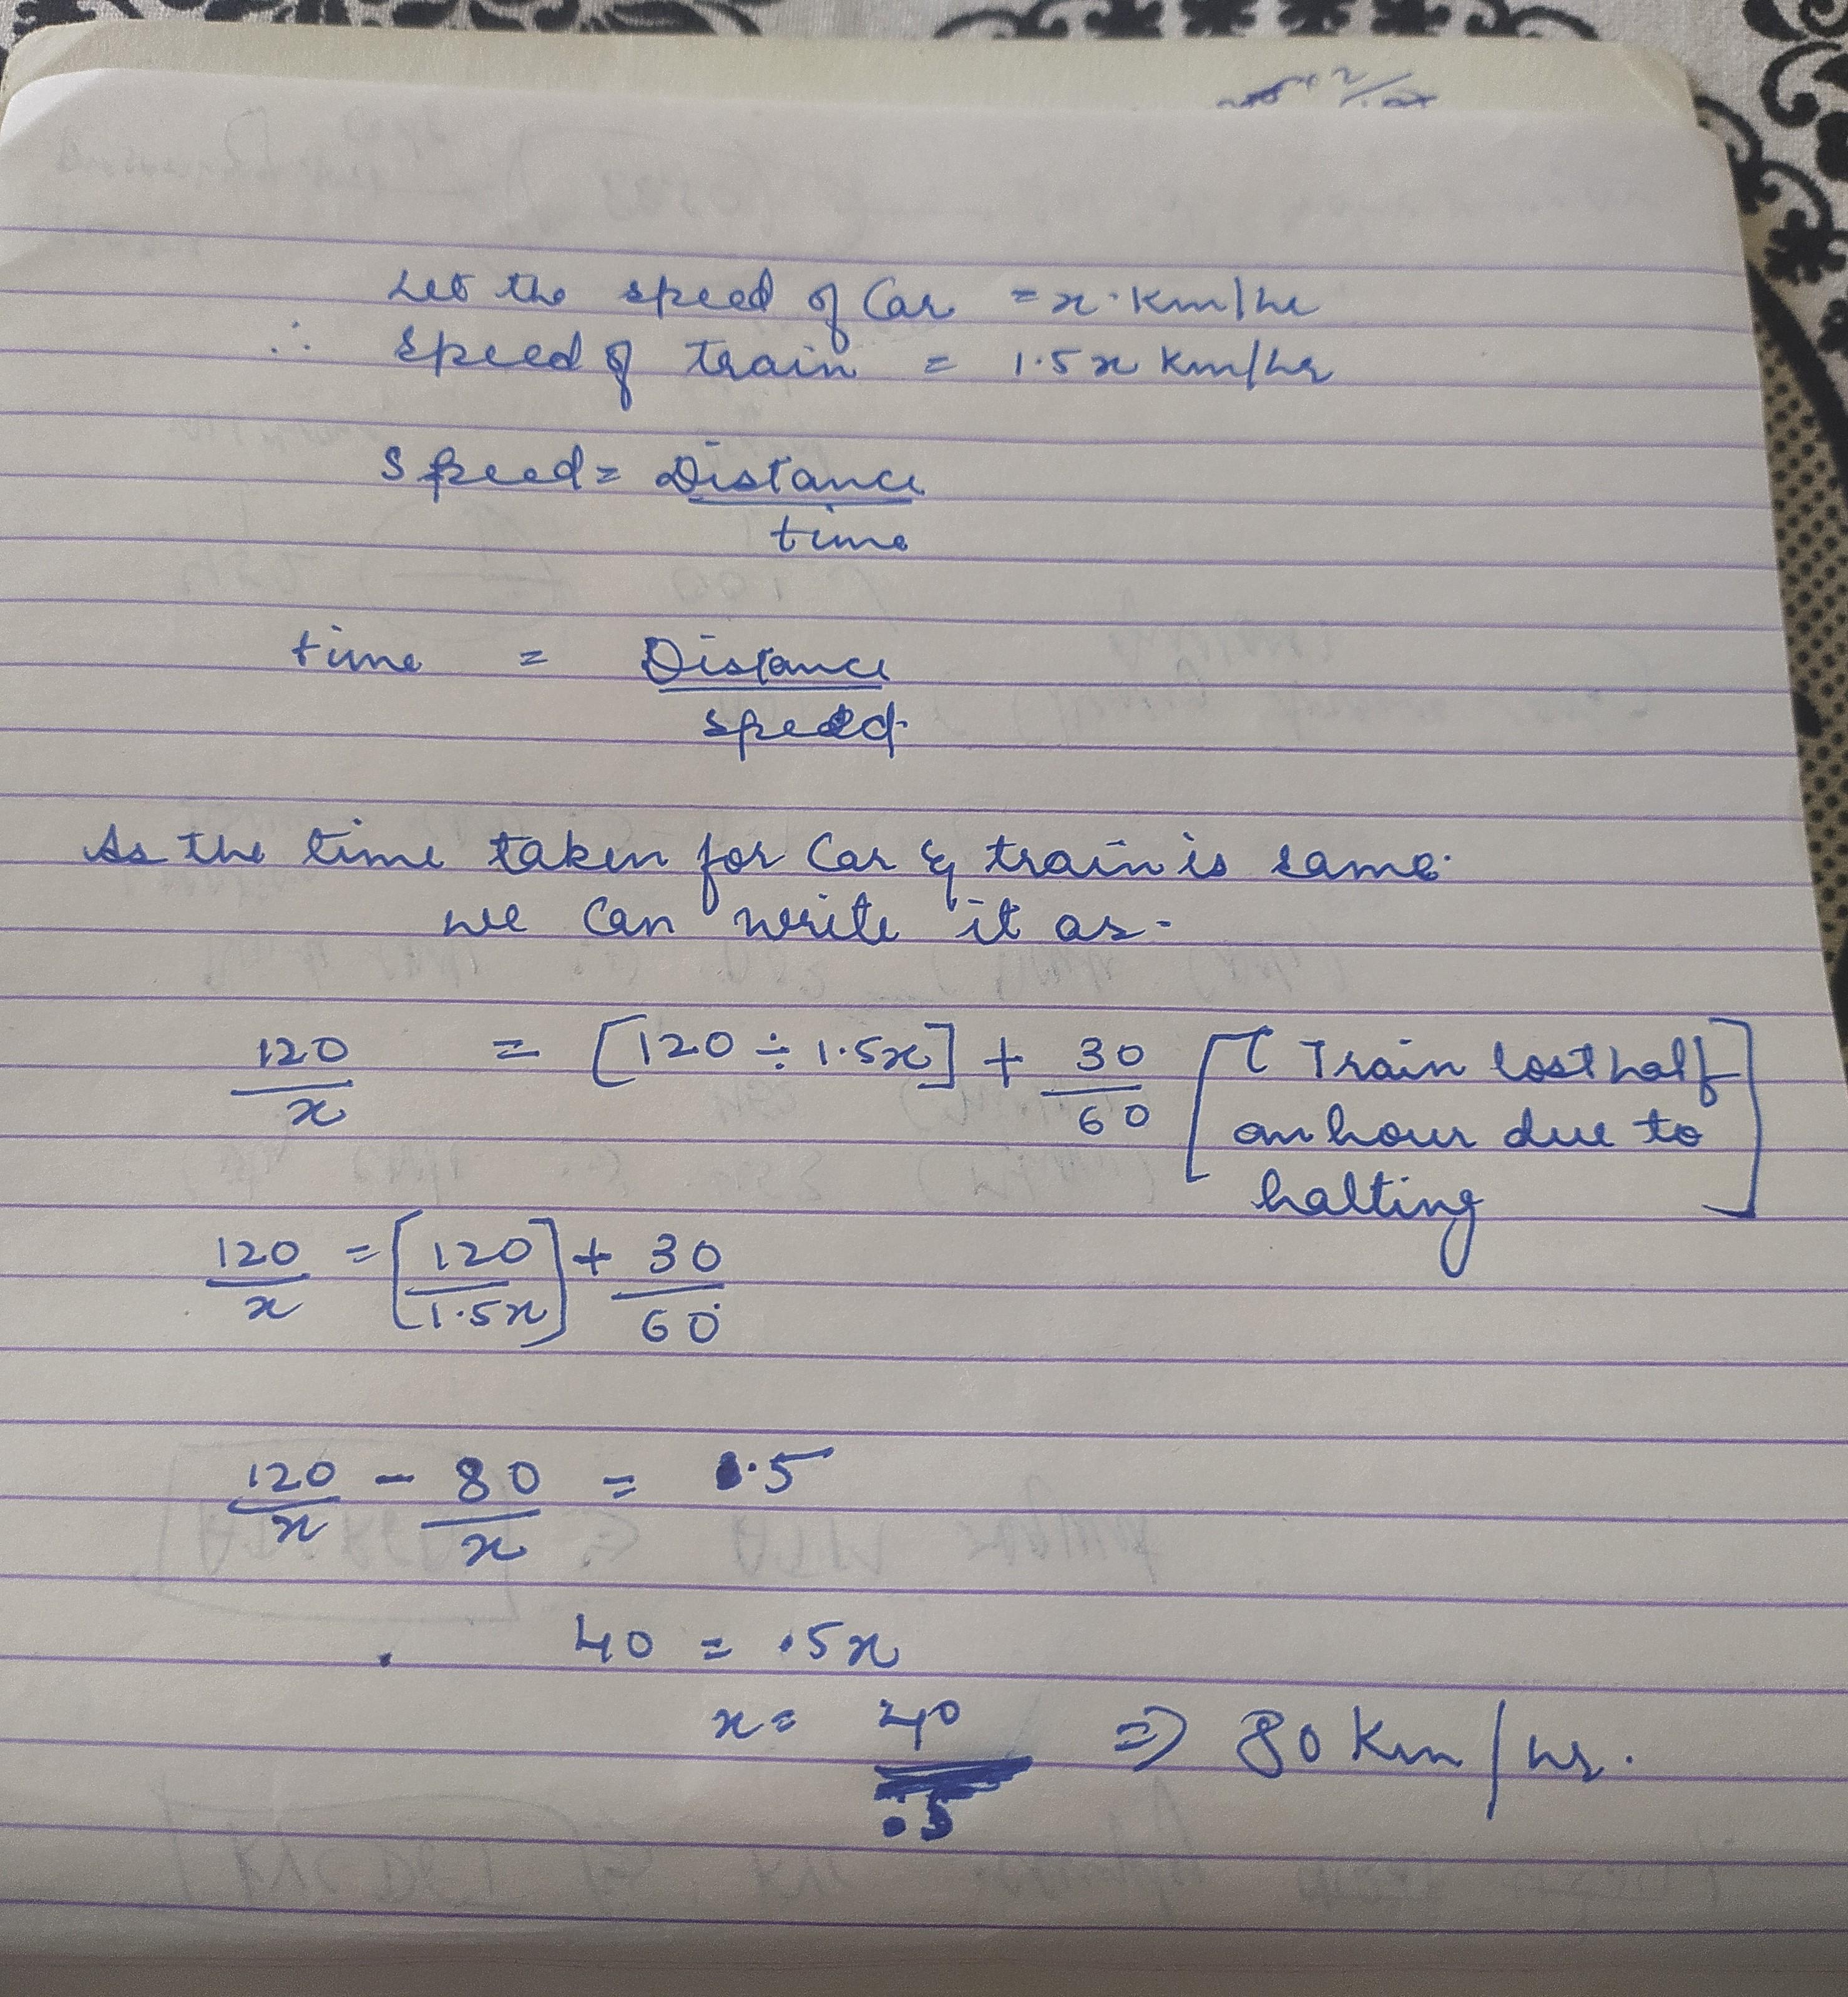 Let the speed of Car = x. Km/hr
∴ Speed of train = 1.5x Km/hr
Speed = Distance
time
time = Distance
speed.
As the time taken for Car & train is same.
we can write it as-
120/x = [120 ÷ 1.5x] + 30/60 [( Train lost half
an hour due to
halting]
120/x = [120/1.5x] + 30/60
120/x - 80/x = 0.5
40 = .5x
x = 40/.5 ⇒ 80 Km/hr.